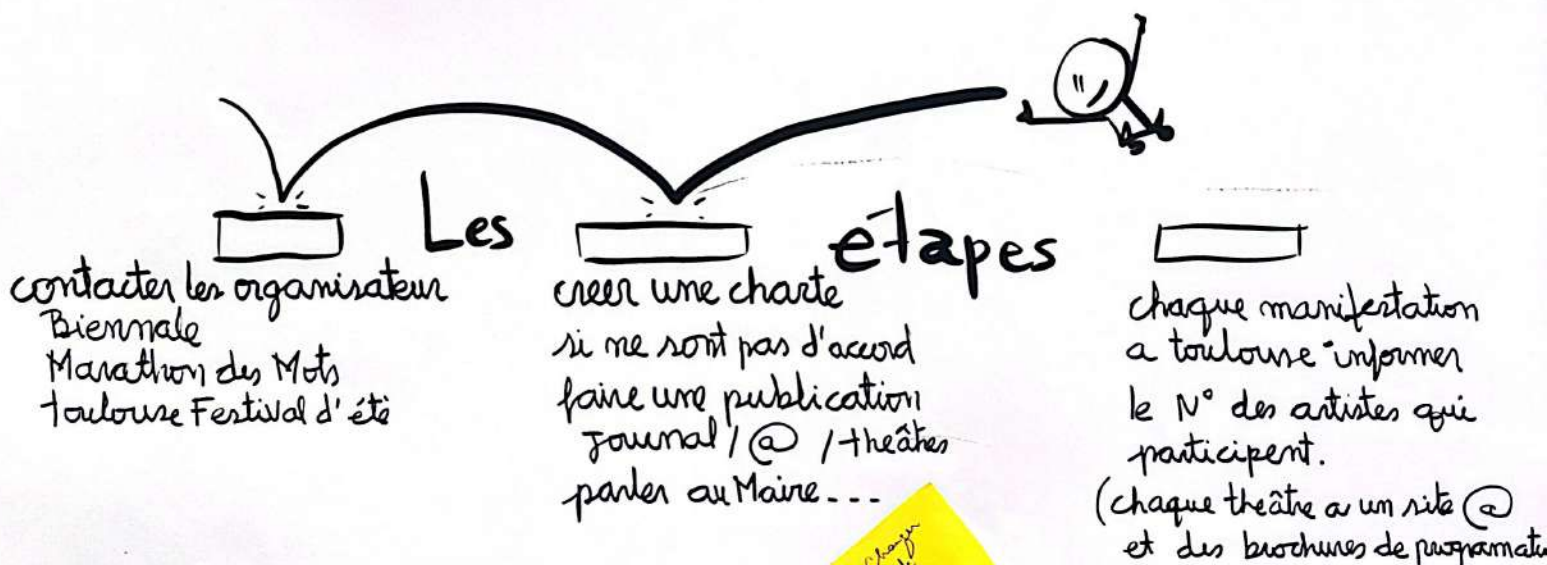 Les étapes
contacter les organisateur
Biennale
Marathon des Mots
toulouse Festival d'été
creer une charte
si ne sont pas d'accord
faire une publication
Journal / @ / theâtres
parler au Maire---
chaque manifestation
a toulouse informer
le N° des artistes qui
participent.
(chaque theâtre a un site @
et des brochures de